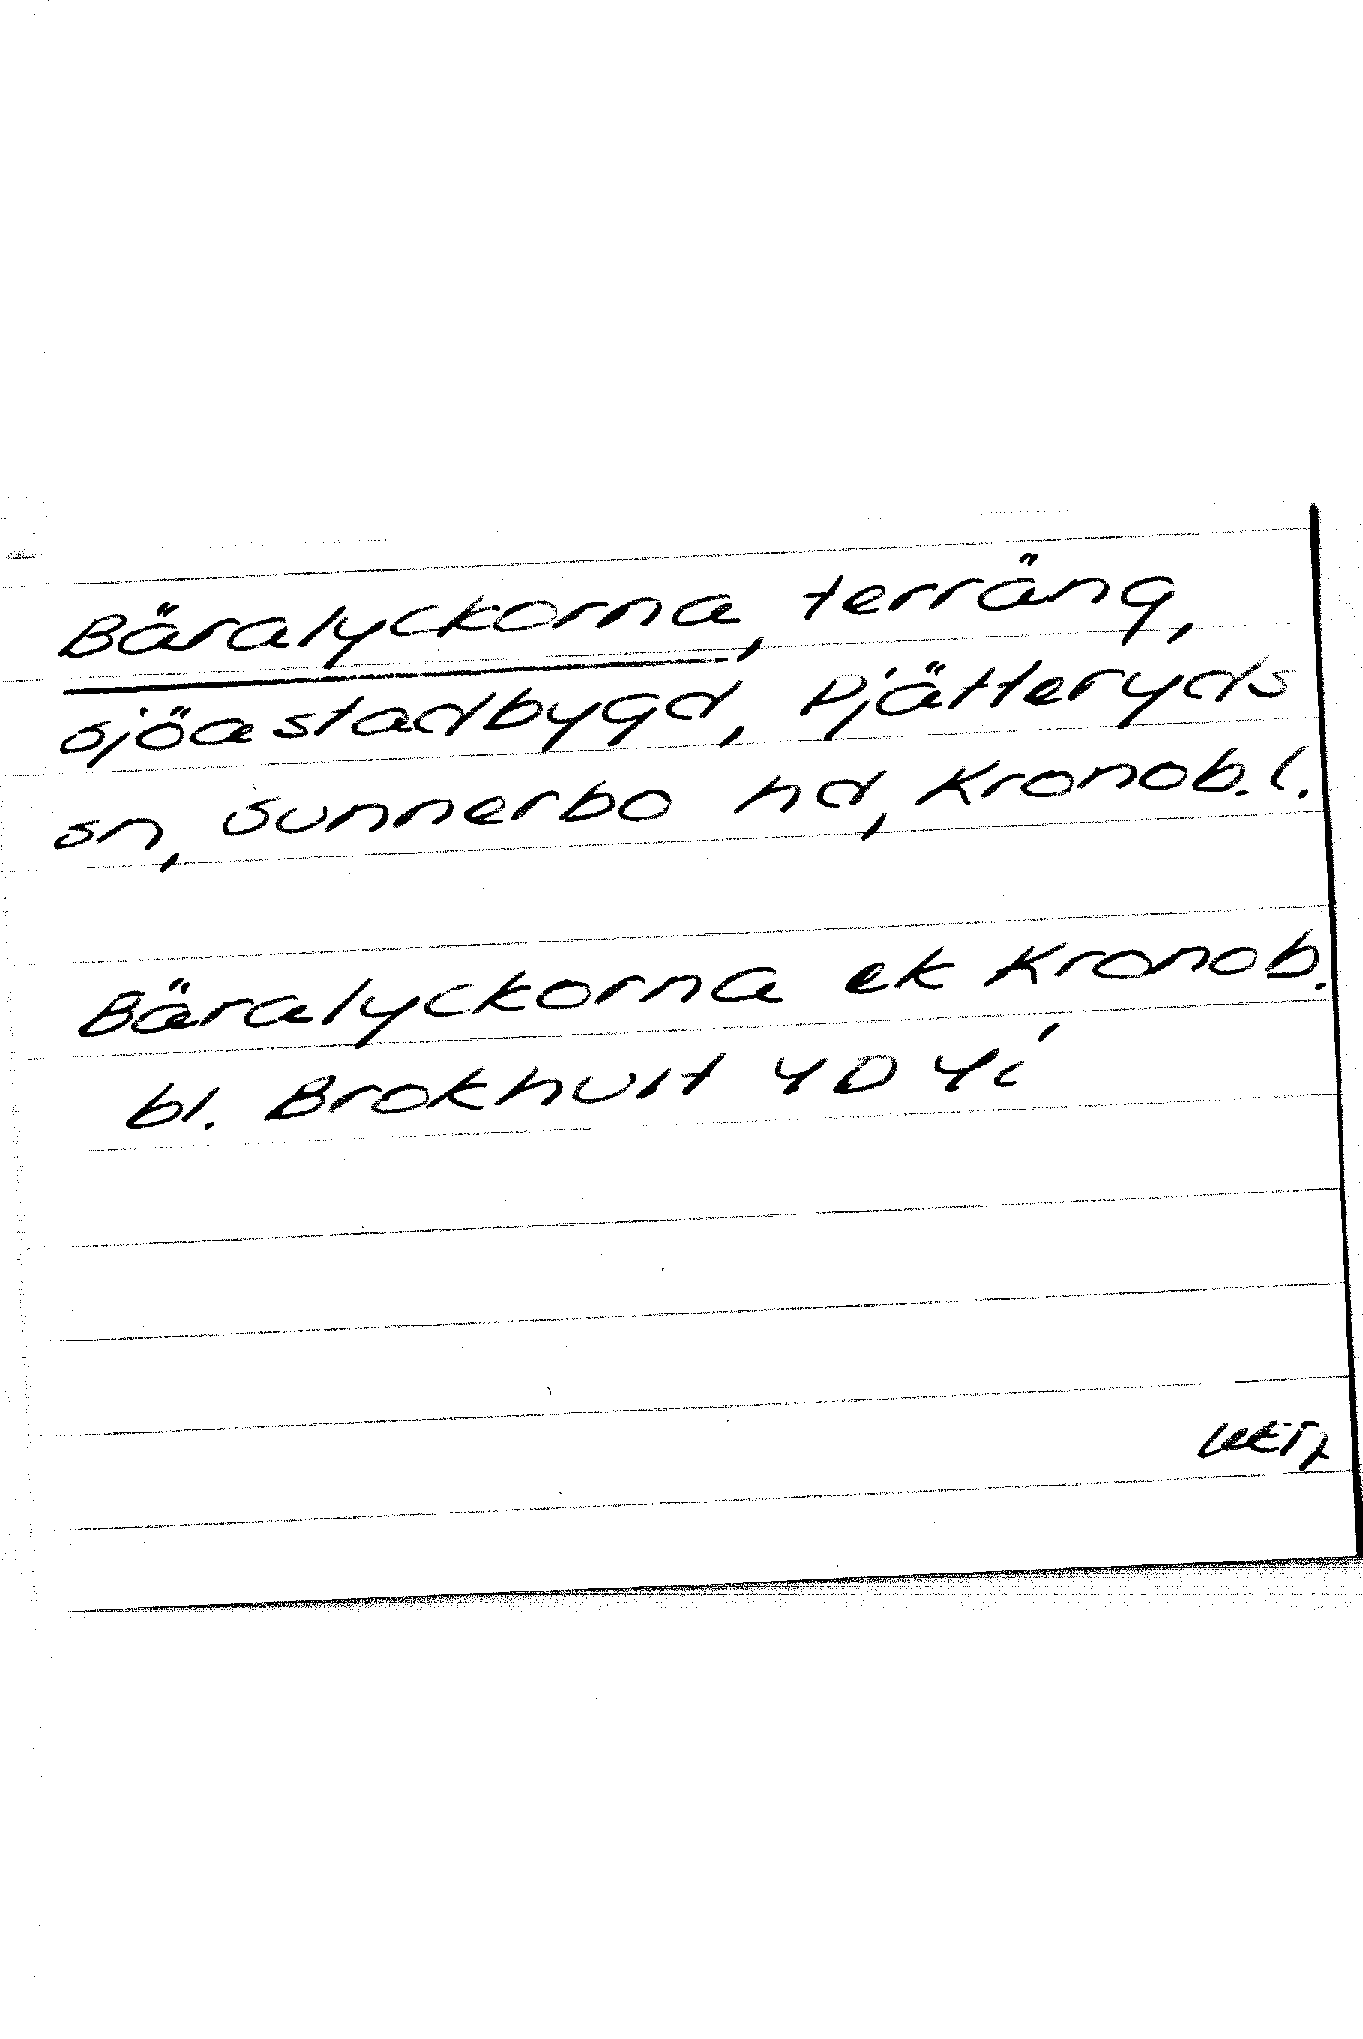 Bäralyckorna, terräng,
sjöastadbygd, Pjätteryds
sn, Sunnerbo hd, Kronob. l.
Bäralyckorna ek Kronob.
bl. Brokhult 4D 4i